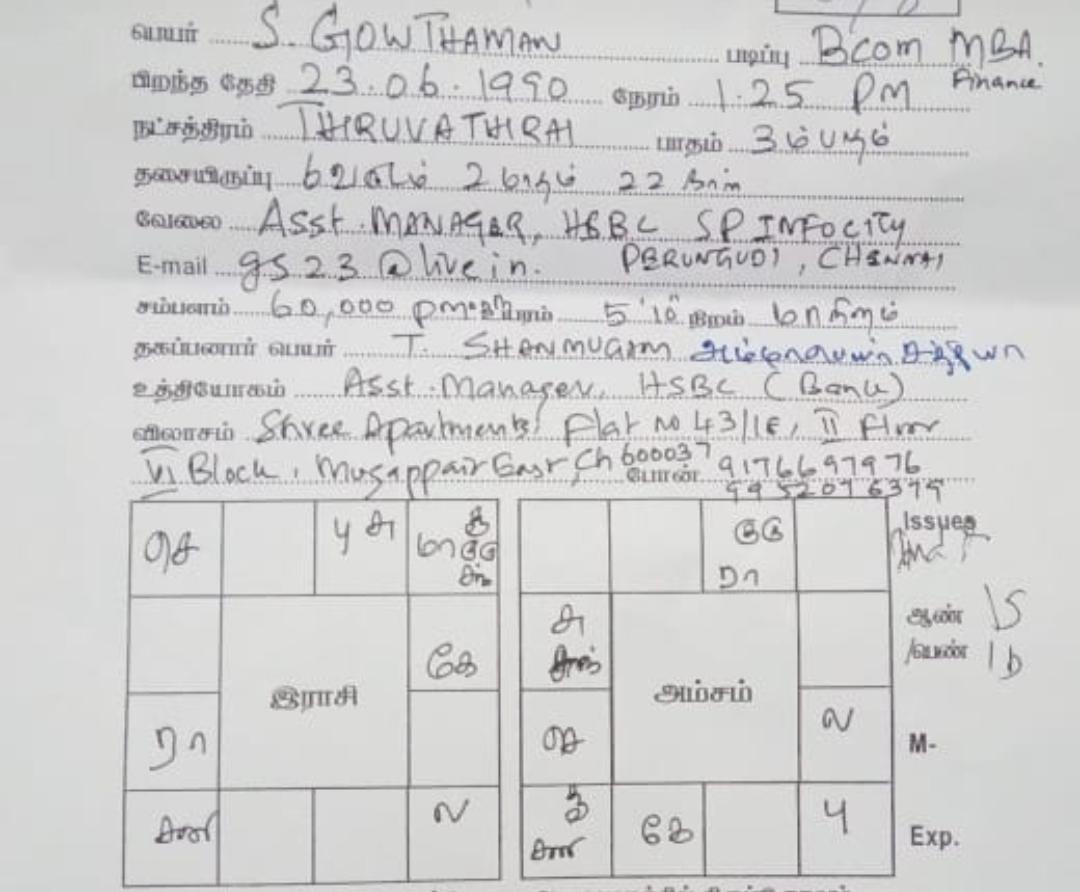 பெயர் S. GOWTHAMAN படிப்பு Bcom MBA.
Finance
பிறந்த தேதி 23.06.1990 நேரம் 1.25 PM
நட்சத்திரம் THIRUVATHIRAI பாதம் 3ம் பாதம்
தசையிருப்பு 6 வருடம் 2 மாதம் 22 நாள்
வேலை Asst. MANAGER, HSBC SP INFOCITY
PERUNGUDI, CHENNAI
E-mail gs23@live in.
சம்பளம் 60,000 pm உயரம் 5'10" நிறம் மாநிறம்
தகப்பனார் பெயர் T. SHANMUGAM
உத்தியோகம் Asst. Manager, HSBC (Bank)
விலாசம் Shree Apartments, Flat No 43/1E, II Floor
VI Block, Mugappair East, Ch 600037 போன் 9176697976
9952076379
செ பு சு மா குரு
கே
இராசி
ரா
சனி ல
குரு ரா
சு
அம்சம்
செ ல
சனி கே பு
Issues
ஆண்
/பெண்
M-
Exp.